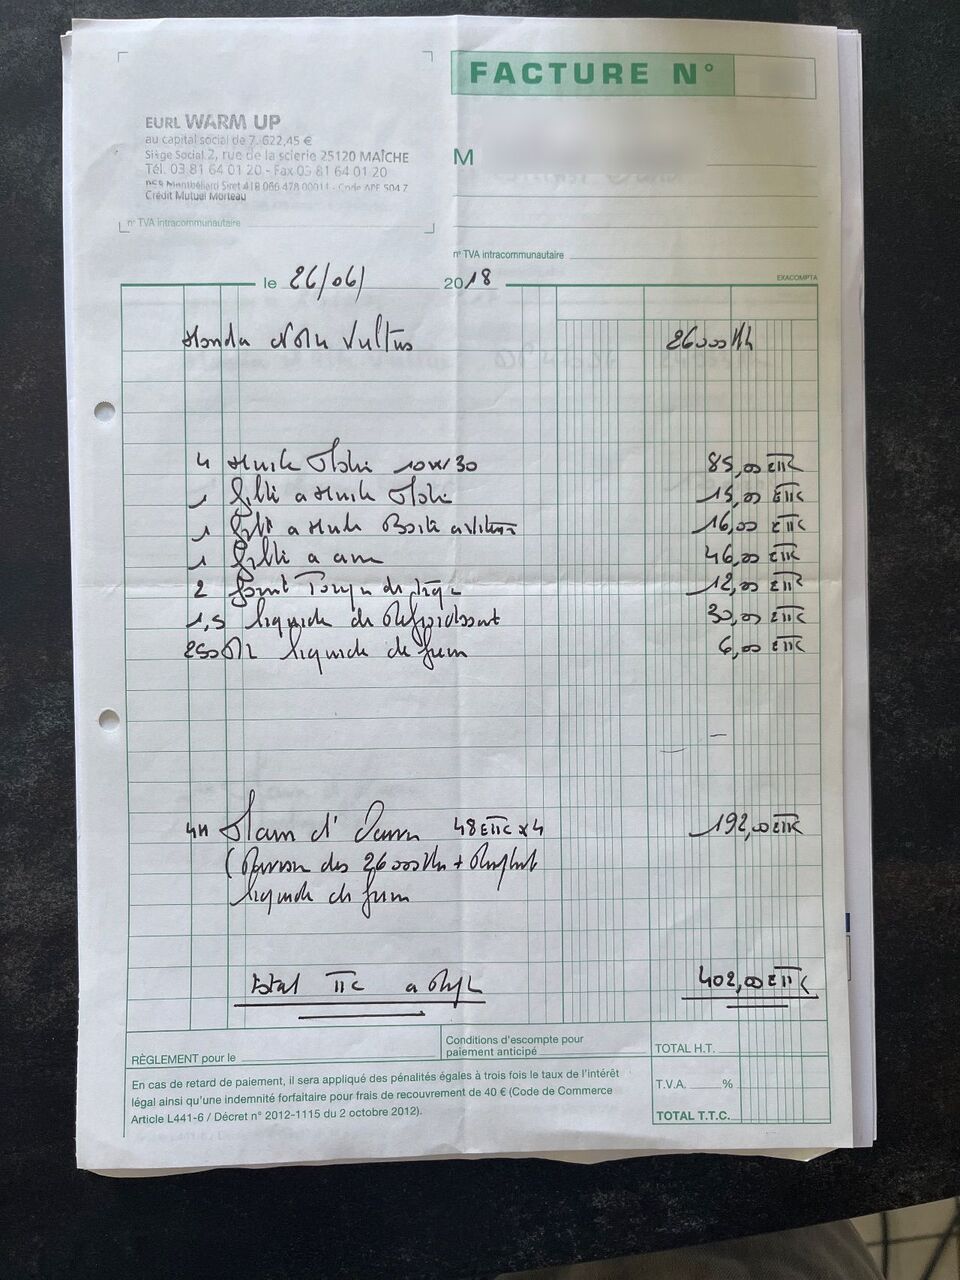 FACTURE N°
EURL WARM UP
au capital social de 7.622,45 €
Siège Social 2, rue de la scierie 25120 MAÎCHE
Tél. 03 81 64 01 20 - Fax 03 81 64 01 20
RCS Montbéliard Siret 418 066 478 00011 - Code APE 504 Z
Crédit Mutuel Morteau
n° TVA intracommunautaire
M
n° TVA intracommunautaire
le 26/06/ 2018
EXACOMPTA
Honda Vultus 26000
4 Huile 10W30 85,00 € TTC
1 15,00 € TTC
1 16,00 € TTC
1 46,00 € TTC
2 Joint 12,00 € TTC
1,5 liquide de Refroidissant 30,00 € TTC
250 liquide de frein 6,00 € TTC
4H Main d' 48 € TTC x 4 192,00 € TTC
(Revision des 26000
liquide de frein
total TTC 402,00 € TTC
RÈGLEMENT pour le
Conditions d'escompte pour
paiement anticipé
TOTAL H.T.
En cas de retard de paiement, il sera appliqué des pénalités égales à trois fois le taux de l'intérêt
légal ainsi qu'une indemnité forfaitaire pour frais de recouvrement de 40 € (Code de Commerce
Article L441-6 / Décret n° 2012-1115 du 2 octobre 2012).
T.V.A. %
TOTAL T.T.C.